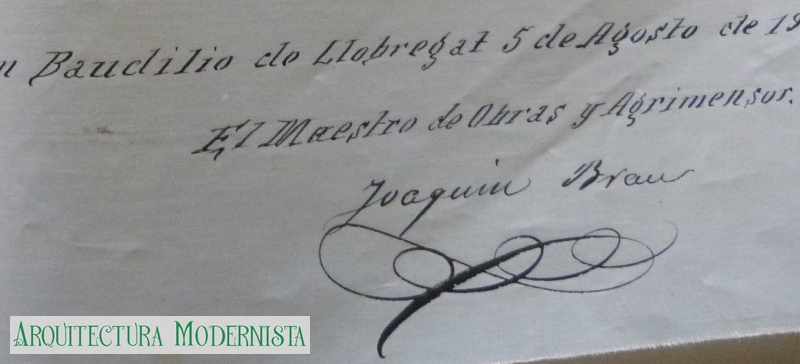 n Baudilio de Llobregat 5 de Agosto de 19
El Maestro de Obras y Agrimensor.
Joaquin Brau
Arquitectura Modernista